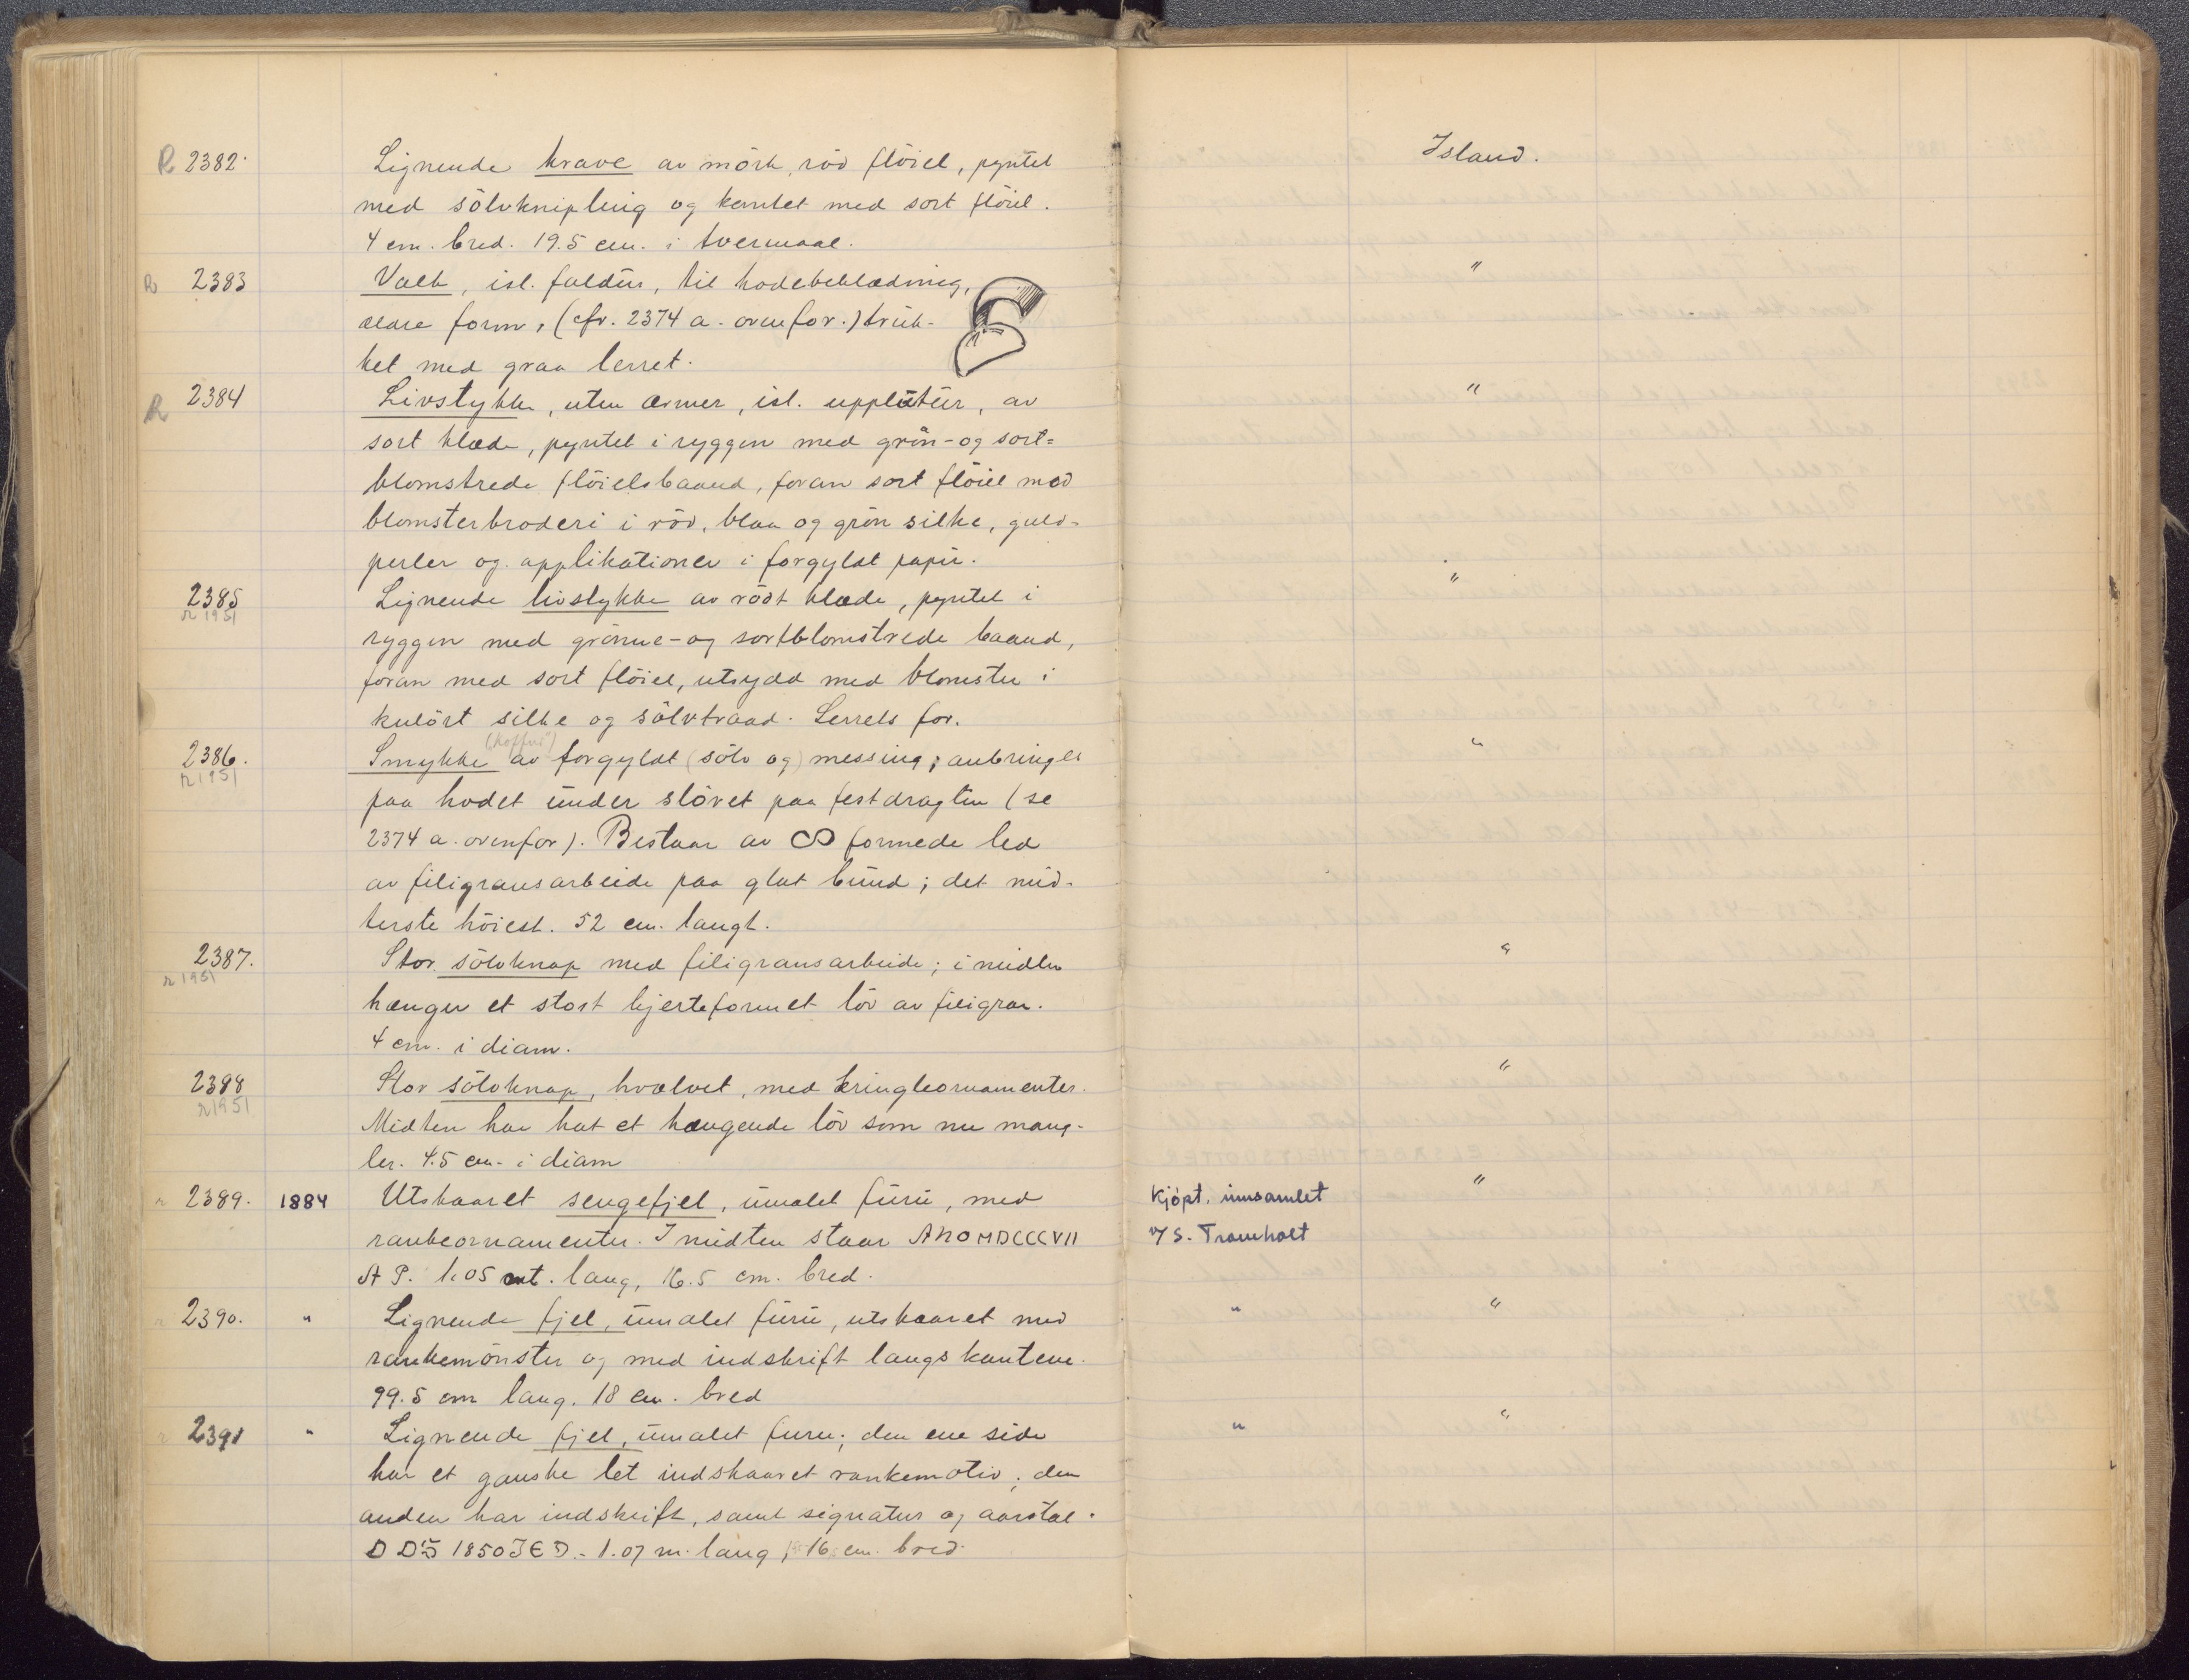 R 2382. Lignende krave av mörk, röd flöiel, pyntet Island.
med sölvknipling og kantet med sort flöiel.
4 cm. bred. 19.5 cm. i tvermaal.
R 2383 Valk, isl. faldur, til hodebeklædning, "
ældre form, (cfr. 2374 a. ovenfor.) truk-
ket med graa lerret.
R 2384 Livstykke, uten ærmer, isl. upplutur, av "
sort klæde, pyntet i ryggen med grön- og sort=
blomstrede flöielsbaand, foran sort flöiel med
blomsterbroderi i röd, blaa og grön silke, guld-
perler og applikationer i forgyldt papir.
2385 Lignende livstykke av rödt klæde, pyntet i "
r 1951
ryggen med grönne- og sortblomstrede baand,
foran med sort flöiel, utsydd med blomster i
kulört silke og sölvtraad. Lerrets for.
(Koffur)
2386. Smykke av forgyldt (sölv og) messing; anbringes "
r 1951
paa hodet under slöret paa festdragten (se
2374 a. ovenfor). Bestaar av ∞ formede led
av filigransarbeide paa glat bund; det mid-
terste höiest. 52 cm. langt.
2387. Stor sölvknap med filigransarbeide; i midten "
r 1951
hænger et stort hjerteformet löv av filigran.
4 cm. i diam.
2388 Stor sölvknap, hvælvet, med kringleornamenter. "
r 1951
Midten har hat et hængende löv som nu mang-
ler. 4.5 cm. i diam
r 2389. 1884 Utskaaret sengefjel, umalet furu, med Kjöpt. innsamlet "
rankeornamenter. I midten staar ANO MDCCCVII v/ S. Tromholt
A P. 1.05 mt. lang, 16.5 cm. bred.
r 2390. " Lignende fjel, umalet furu, utskaaret med " "
rankemönster og med indskrift langs kantene.
99.5 cm lang. 18 cm. bred
r 2391 " Lignende fjel, umalet furu; den ene side " "
har et ganske let indskaaret rankemotiv; den
anden har indskrift, samt signatur og aarstal.
1850 - 1.07 m. lang, 16 cm. bred